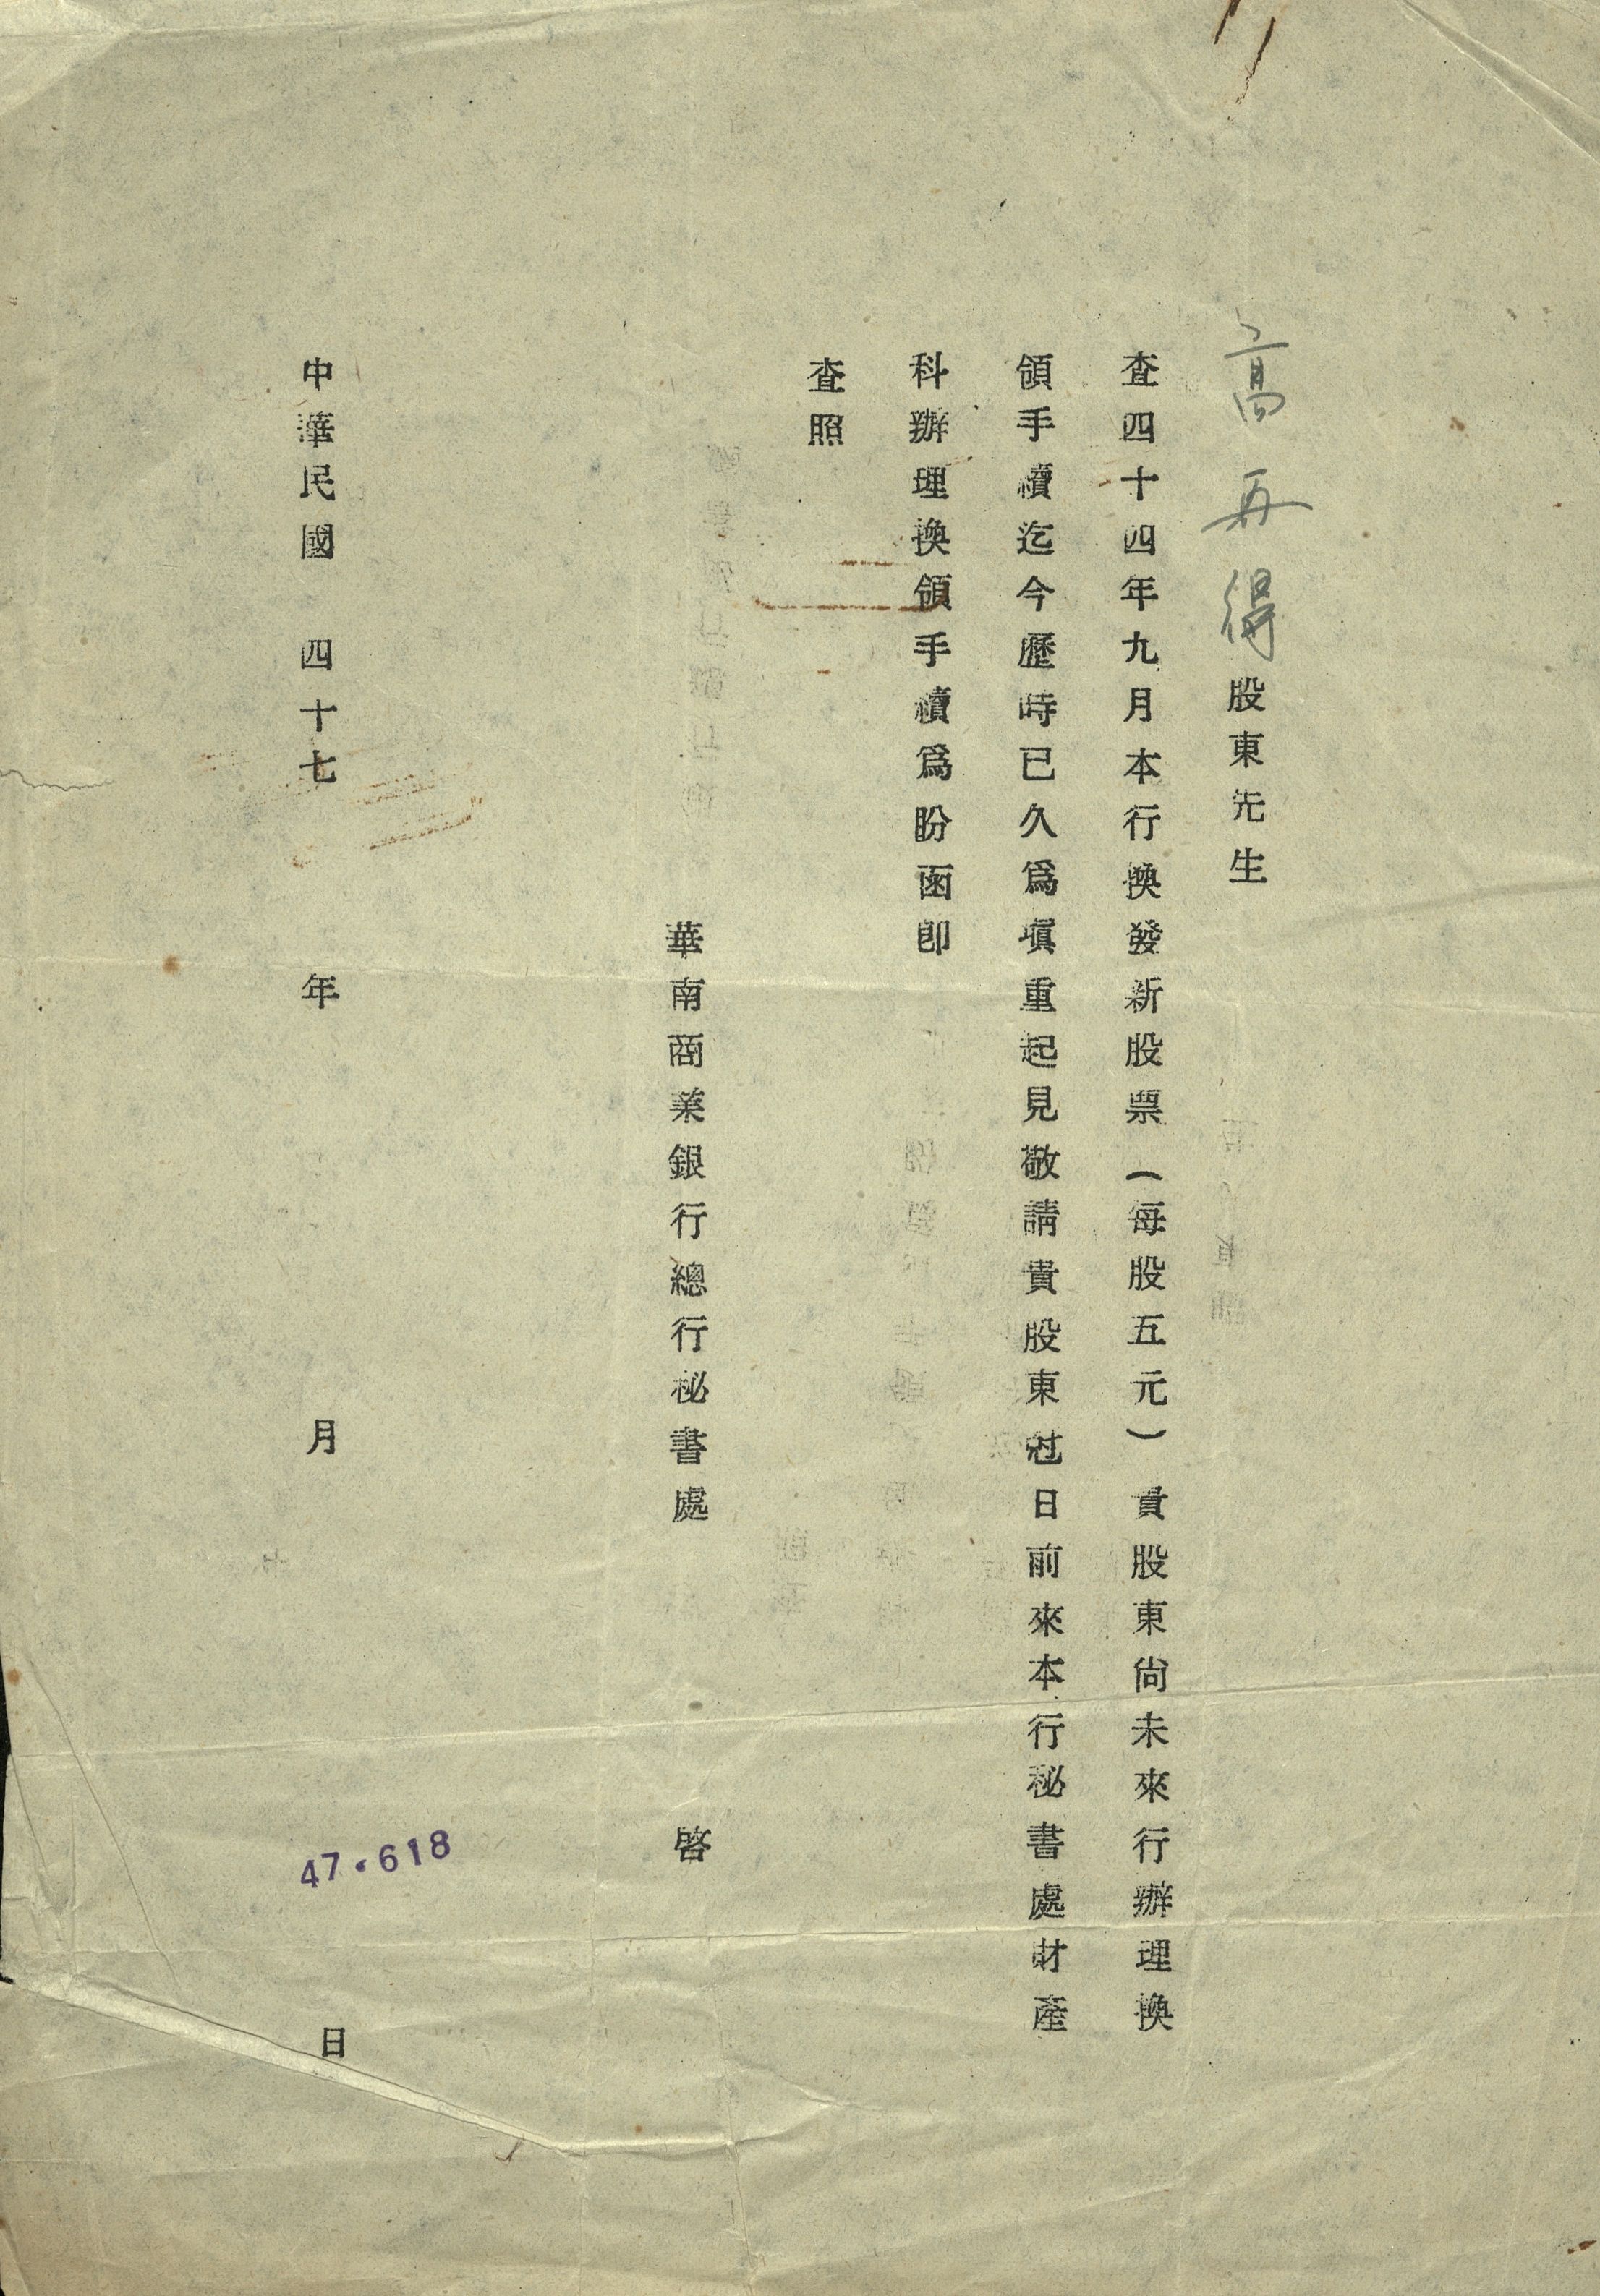 高再得股東先生
查四十四年九月本行換發新股票（每股五元）貴股東尚未來行辦理換
領手續迄今歷時已久爲塡重起見敬請貴股東尅日前來本行秘書處財產
科辦理換領手續爲盼函即
查照
華南商業銀行總行秘書處 啓
中華民國 四十七 年 月 日
47.618